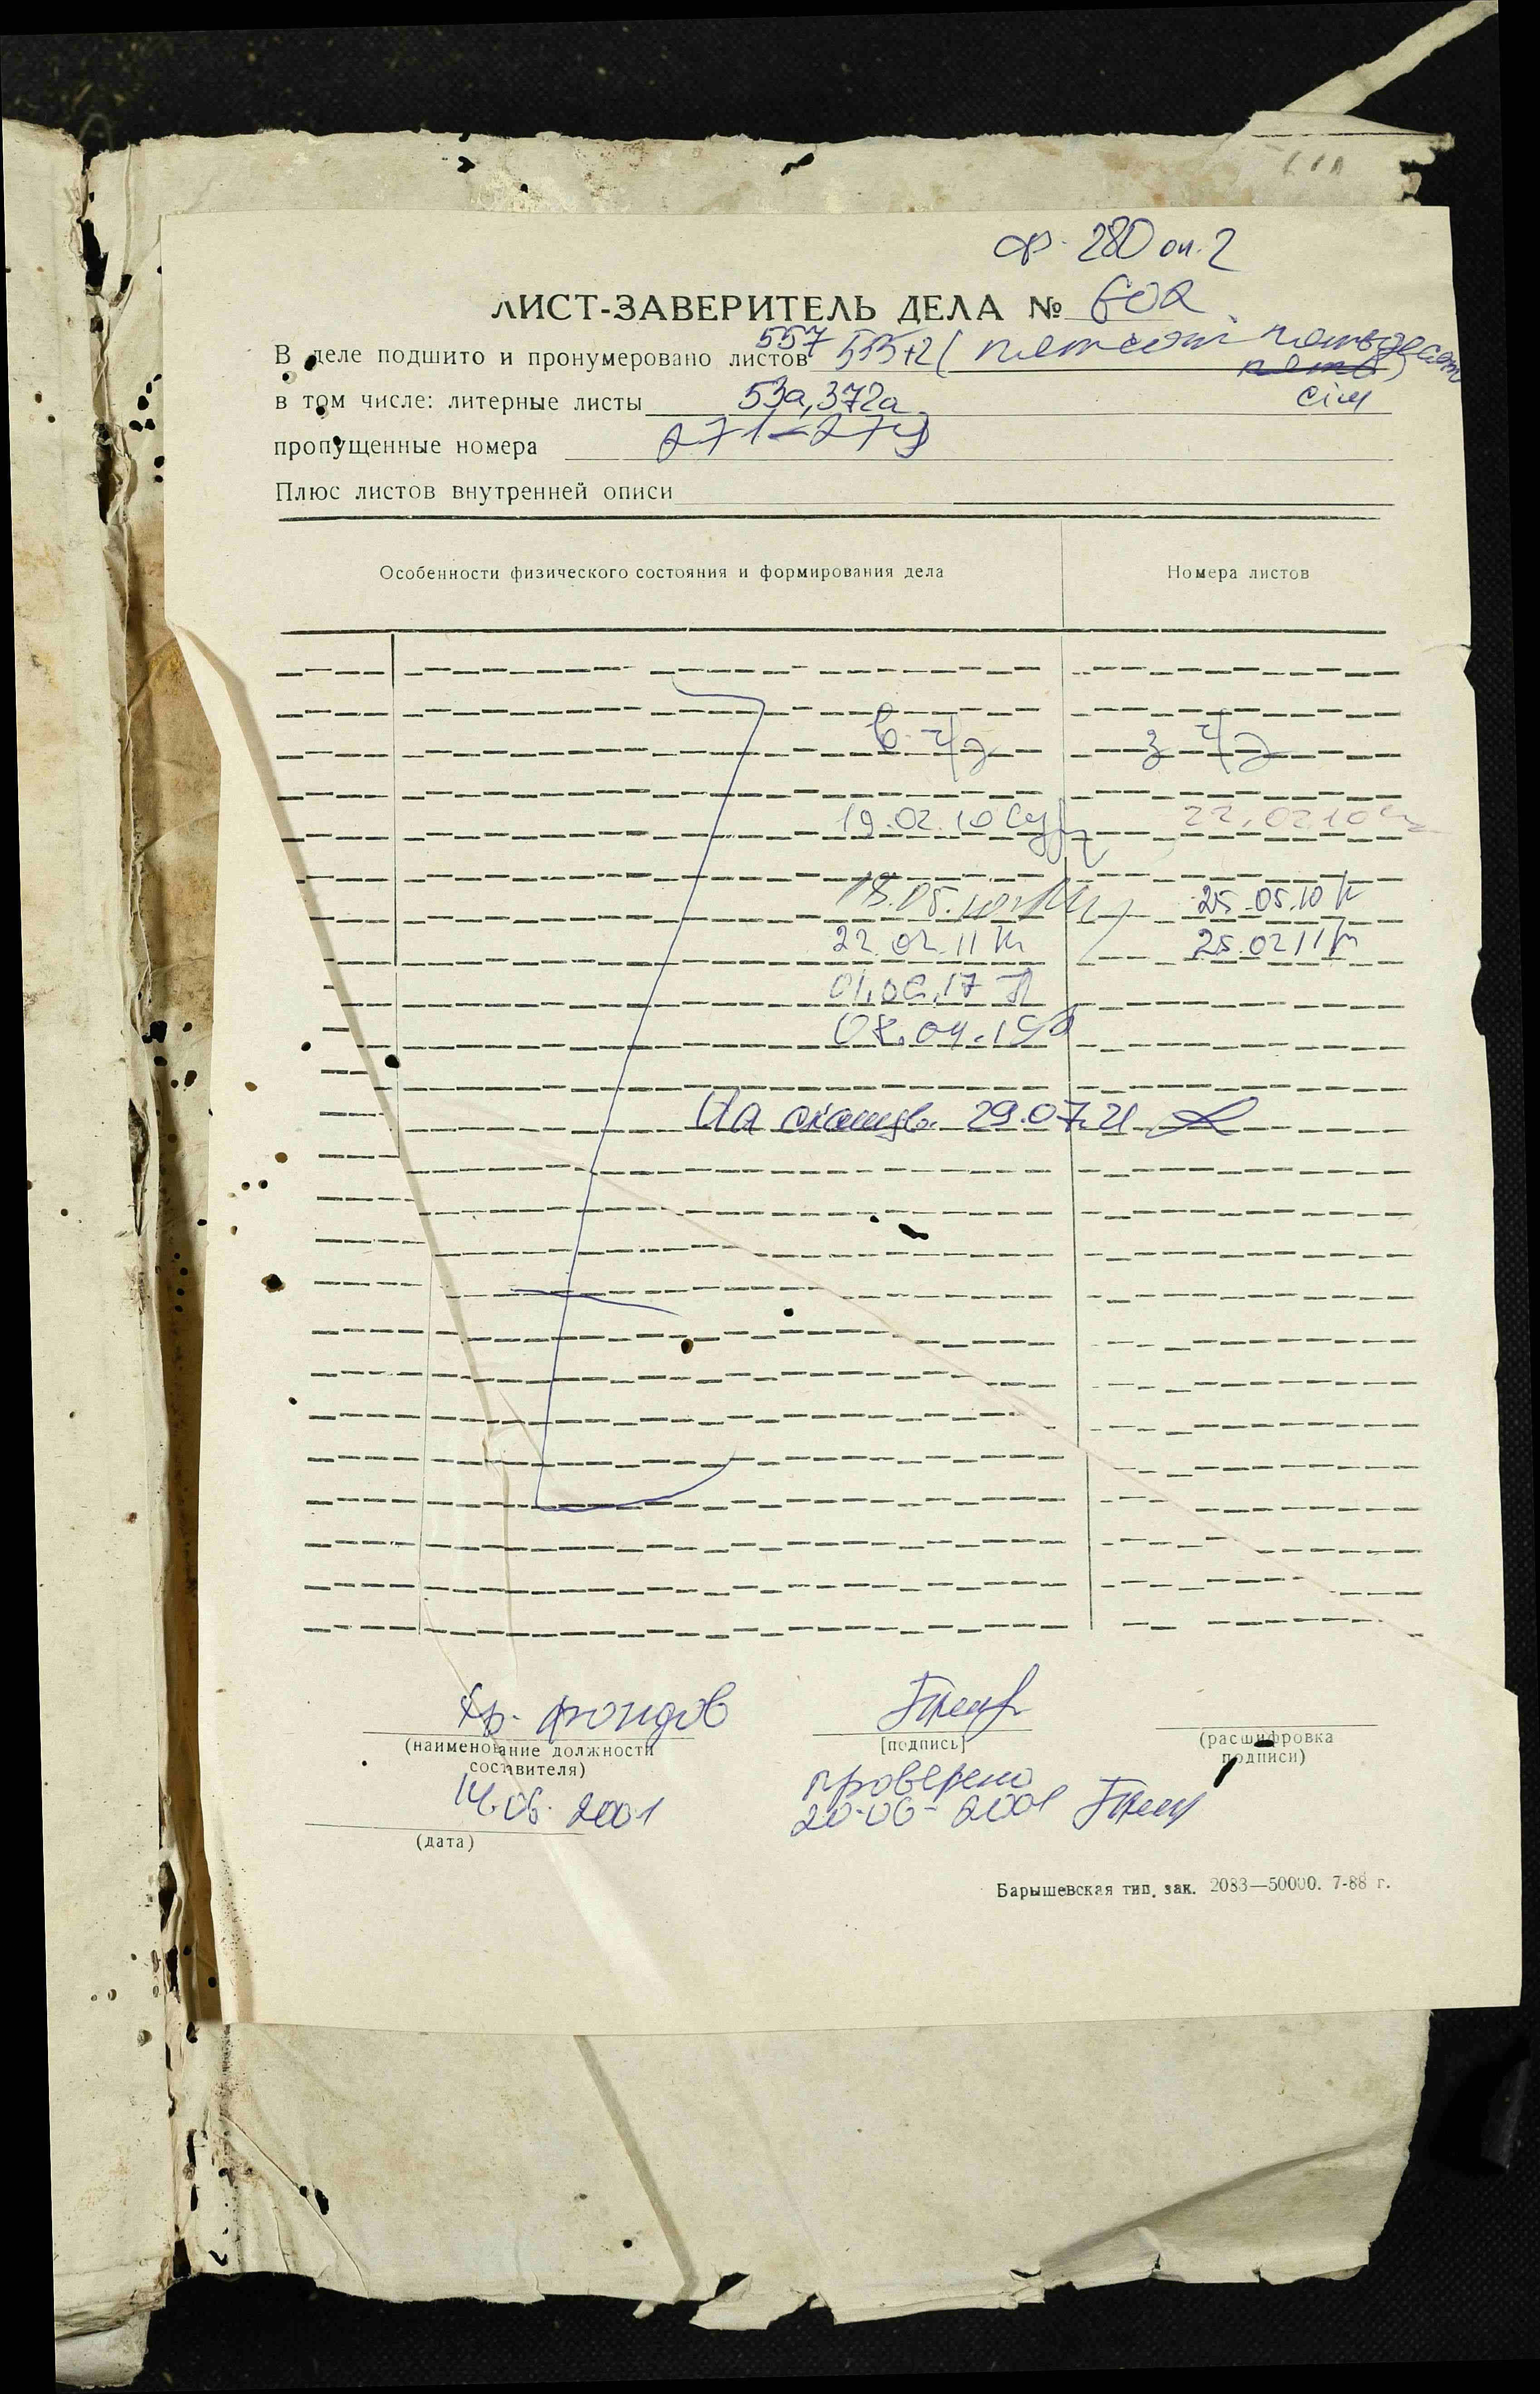 ф. 280 оп. 2
ЛИСТ-ЗАВЕРИТЕЛЬ ДЕЛА № 602
557
В деле подшито и пронумеровано листов 555+2 ( пятсот пятьдесят
пять)
сім
в том числе: литерные листы 53а, 372а
пропущенные номера 271-274
Плюс листов внутренней описи
Особенности физического состояния и формирования дела Номера листов
в ч/з з ч/з
19.02.10 22.02.10
18.05.10 25.05.10
22.02.11 25.02.11
На сканув. 29.07.21
хр. фондов
(наименование должности составителя)
[подпись]
(расшифровка подписи)
14.06.2001
(дата)
проверено
20-06-2001
Барышевская тип. зак. 2083—50000. 7-88 г.